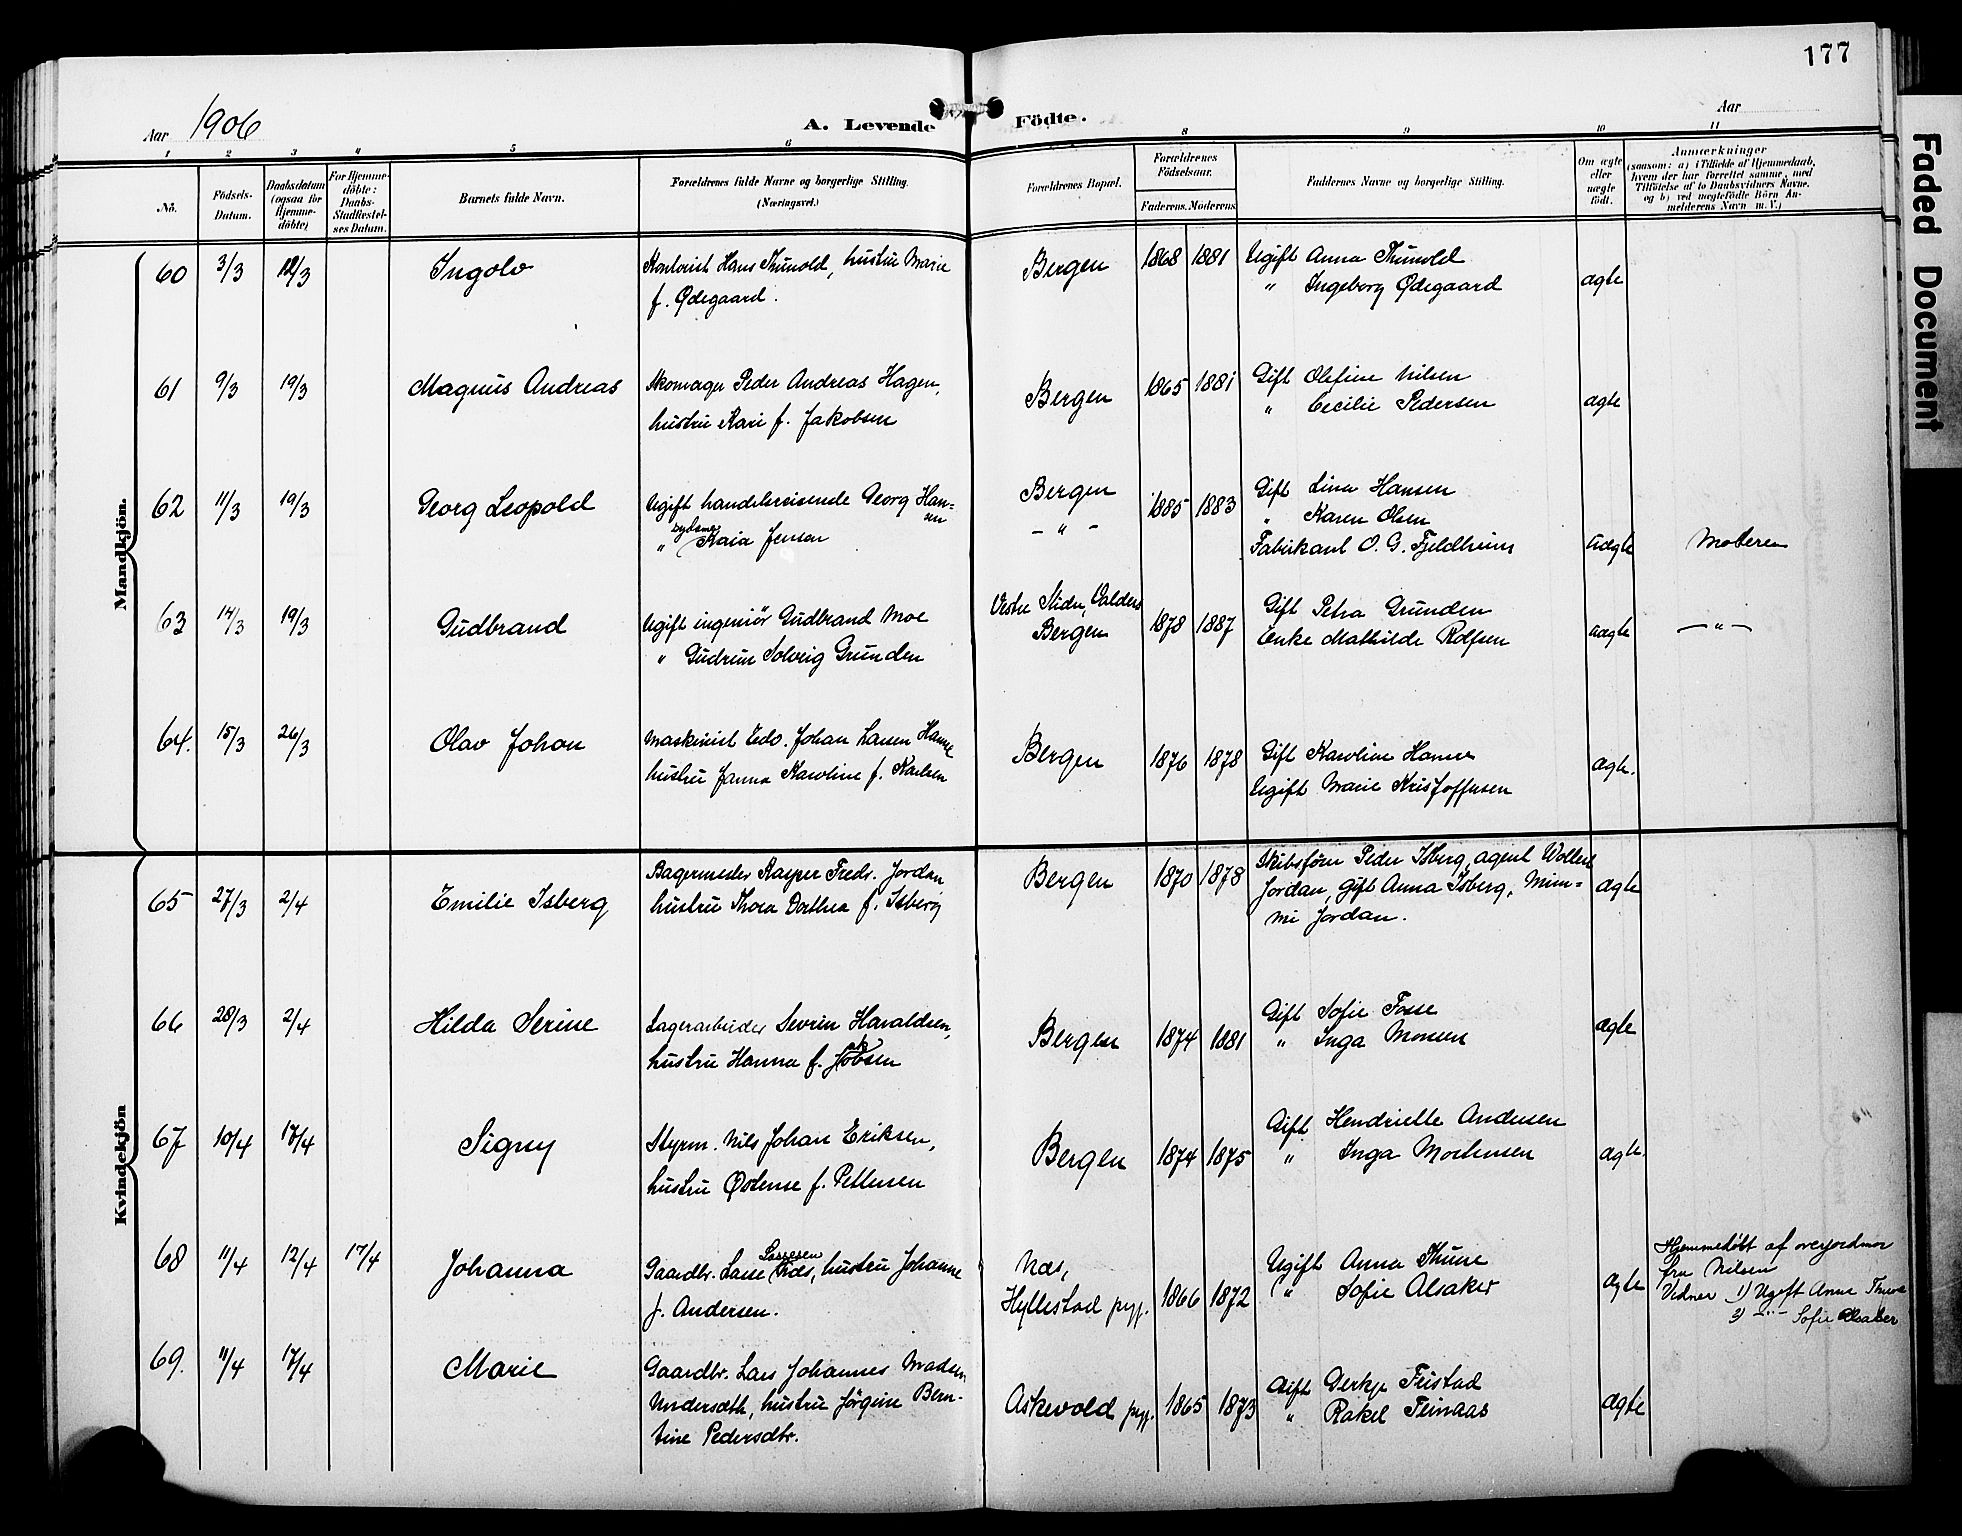 177
Aar 1906
A. Levende Födte.
Aar
1 2 3 4 5 6 8 9 10 11
Nô.
Födsels-Datum.
Daabsdatum (ogsaa för Hjemme-döbte)
For Hjemme-döbte: Daabs-Stadfæstel-ses Datum.
Barnets fulde Navn.
Forældrenes fulde Navne og borgerlige Stilling. (Næringsvei.)
Forældrenes Bopæl.
Forældrenes Födselsaar.
Faderens. Moderens.
Faddernes Navne og borgerlige Stilling.
Om ægte eller uægte födt.
Anmærkninger
(saasom: a) i Tilfælde af Hjemmedaab, hvem der har forrettet samme, med Tilföielse af to Daabsvidners Navne, og b) ved uægtefödte Börn An-melderens Navn m. V.)
Mandkjön.
60 3/3 12/3 Ingolv Kontorist Hans Thunold, hustru Marie Bergen 1868 1881 Ugift Anna Thunold
f. Ødegaard. " Ingeborg Ødegaard ægte
61 9/3 19/3 Magnus Andreas Skomager Peder Andreas Hagen, Bergen 1865 1881 Gift Olefine Nilsen
hustru Kari f. Jakobsen " Cecilie Pedersen ægte
62 11/3 19/3 Georg Leopold Ugift handelsreisende Georg Han= Bergen 1885 1883 Gift Lina Hansen
sen
" syderske Kaia Jensen - " - " Karen Olsen
Fabrikant O. G. Fjeldheim uægte Moderen
63 14/3 19/3 Gudbrand Ugift ingeniör Gudbrand Moe Vestre Slidre, Valders 1878 1887 Gift Petra Grunden
" Gudrun Solveig Grunden Bergen Enke Mathilde Rolfsen uægte - " -
64. 15/3 26/3 Olav Johan Maskinist Edv. Johan Larsen Hamre Bergen 1876 1878 Gift Karoline Hamre
hustru Janna Karoline f. Karlsen Ugift Marie Kristoffersen ægte.
Kvindekjön
65 27/3 2/4 Emilie Isberg Bagermester Kasper Fredr. Jordan, Bergen 1870 1878 Skibsförer Peder Isberg, agent Wollert
hustru Thora Dorthea f. Isberg Jordan, gift Anna Isberg, Mim= ægte
mi Jordan.
66 28/3 2/4 Hilda Serine Lagerarbeider Sevrin Haraldsen, Bergen 1874 1881 Gift Sofie Fosse
hustru Hanna f. Jakobsen " Inga Monsen ægte
67 10/4 17/4 Signy Styrm. Nils Johan Eriksen, Bergen 1874 1875 Gift Hendriette Andersen
hustru Østense f. Pettersen " Inga Mortensen ægte.
68 11/4 12/4 17/4 Johanna Gaardbr. Lasse Lassesen Næs, hustru Johanne Næs, 1866 1872 Ugift Anna Thune Hjemmedöbt af overjordmor
f. Andersen. Hyllestad prgj. " Sofie Alsaker ægte fru Nilsen
Vidner 1) Ugift Anna Thune
2) - " - Sofie Alsaker
69. 11/4 17/4 Marie Gaardbr. Lars Johannes Madsen Askevold prgj. 1865 1873 Gift Feistad
Undersæth, hustru Jørgine Bern- " Rakel Steinaas ægte
tine Pedersdtr.
Faded Document